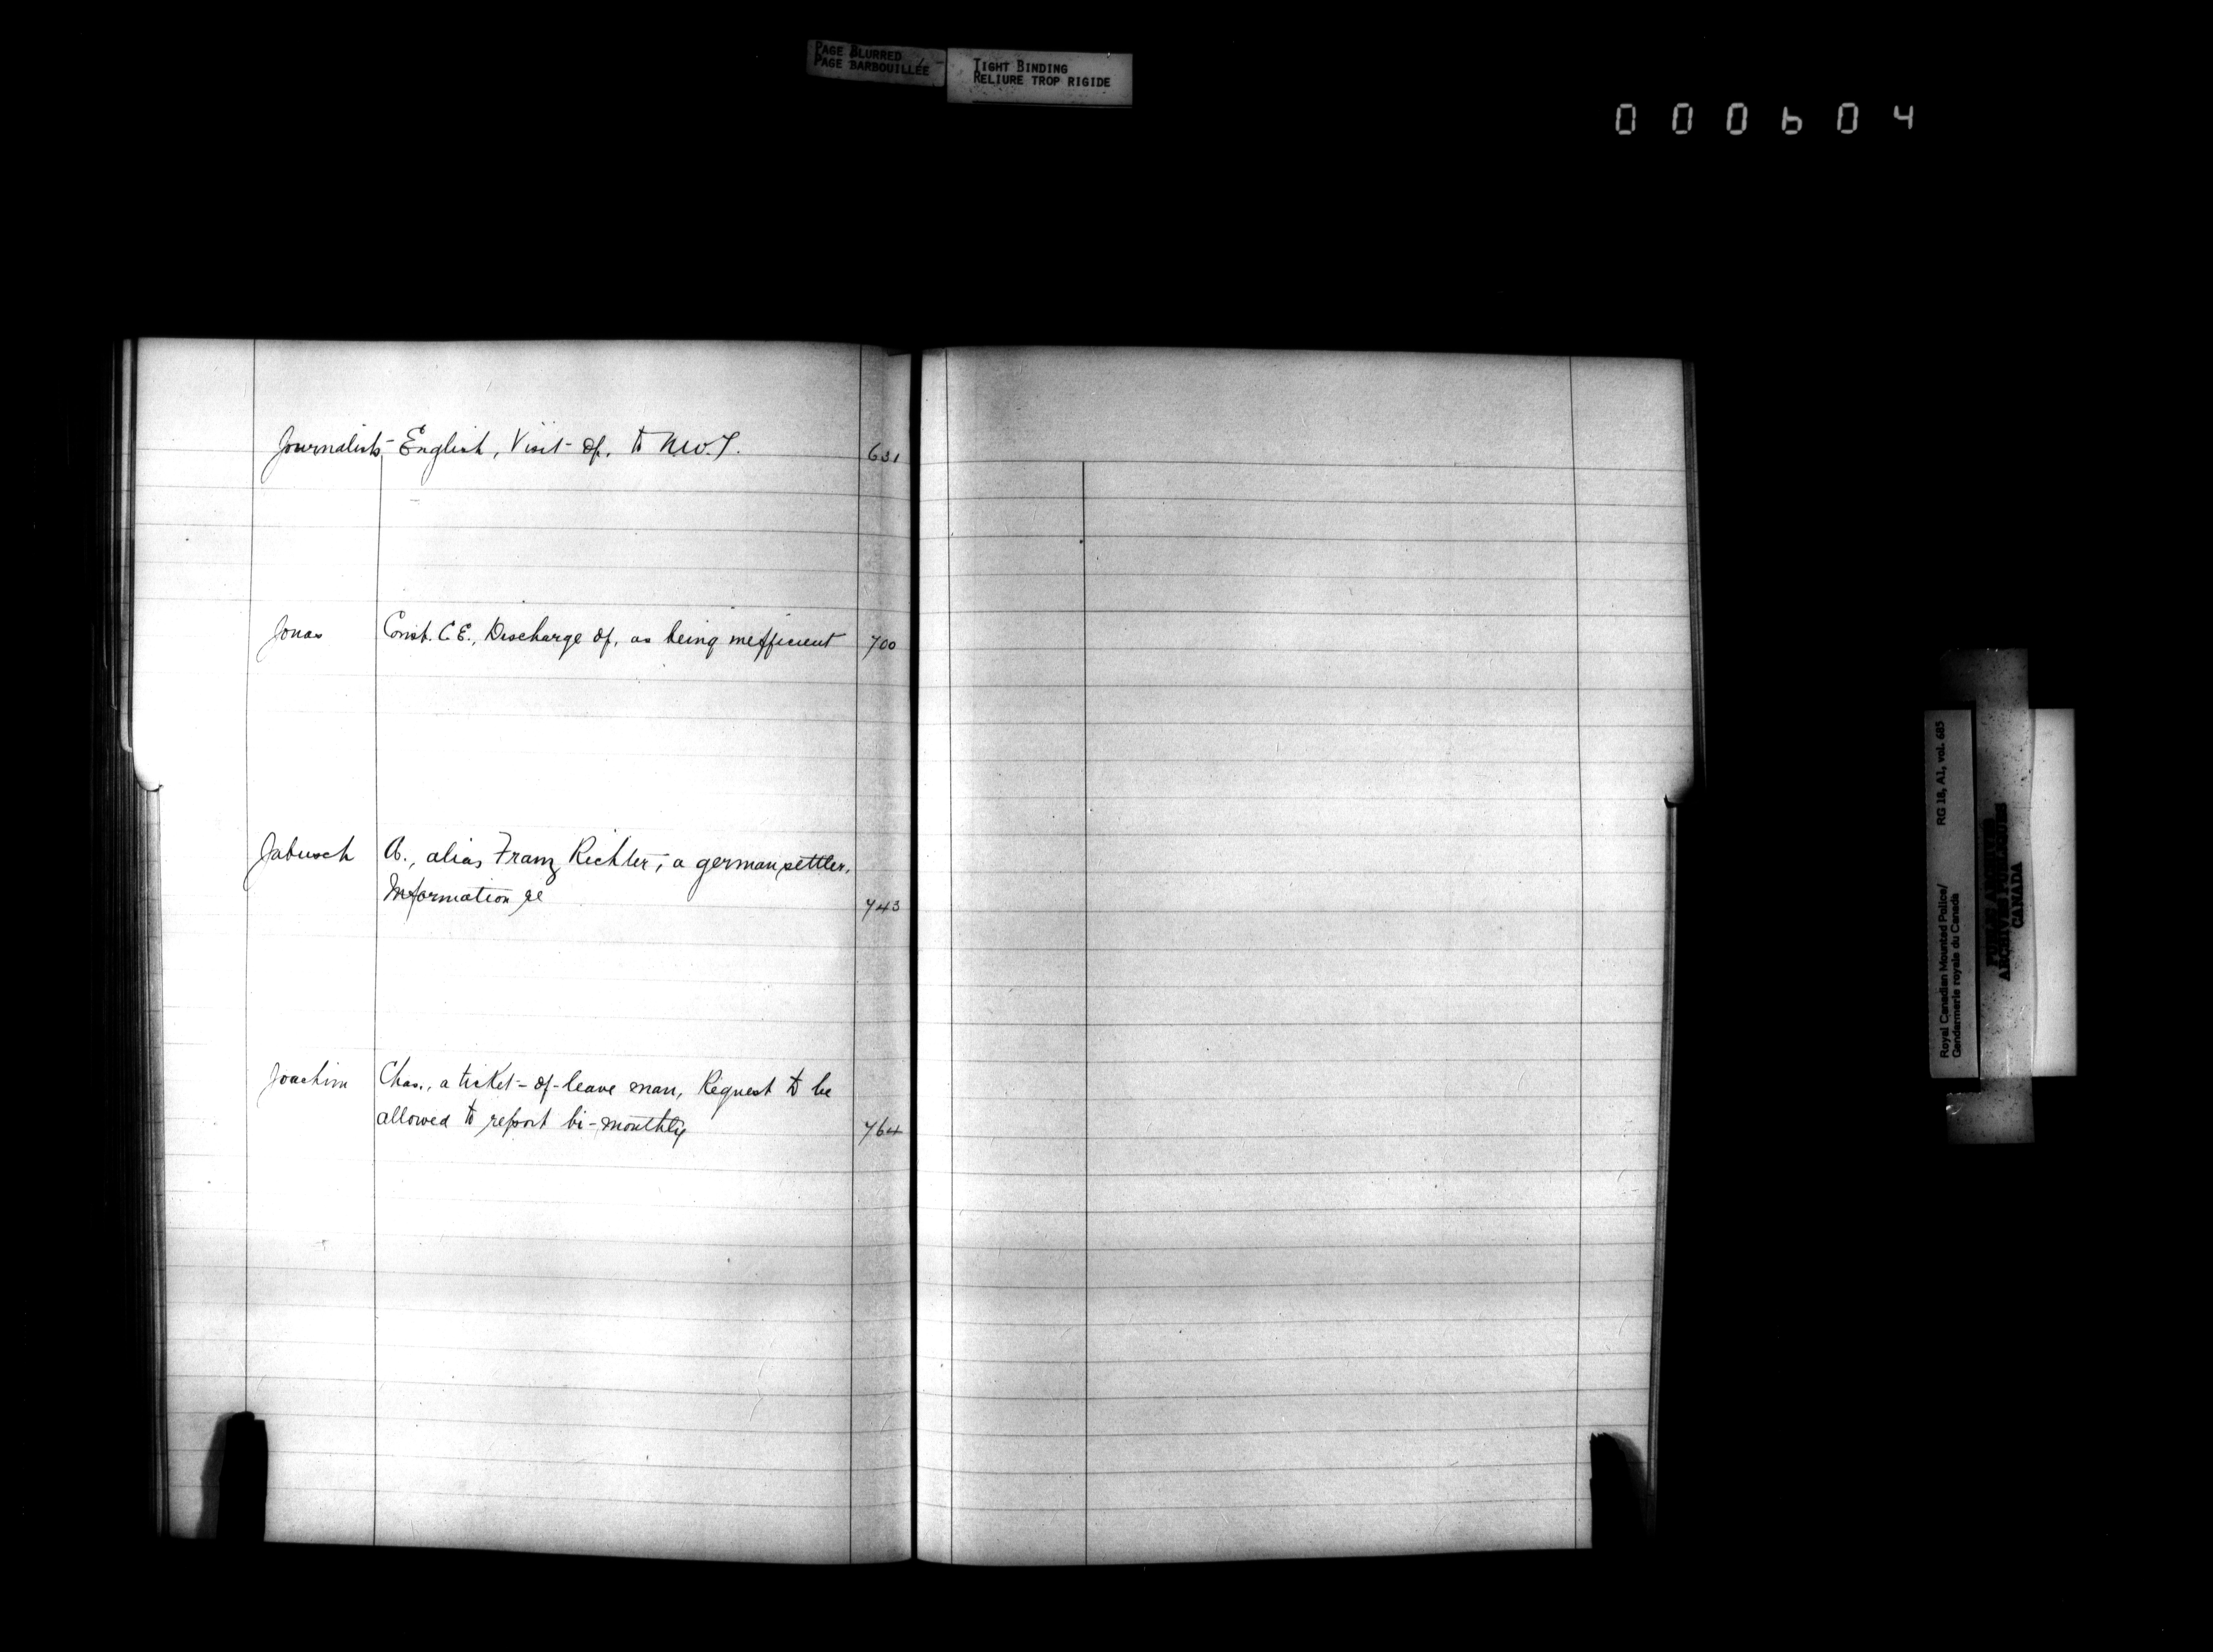 PAGE BLURRED
PAGE BARBOUILLÉE
TIGHT BINDING
RELIURE TROP RIGIDE
000604
Journalists - English, Visit of, to N.W.T. 631
Jonas Const. C.E., Discharge of, as being inefficient 700
Jabusch A., alias Franz Richter, a german settler,
Information re 743
Joachim Chas., a ticket-of-leave man, Request to be
allowed to report bi-monthly 764
Royal Canadian Mounted Police/ RG 18, A1, vol. 685
Gendarmerie royale du Canada
PUBLIC ARCHIVES
ARCHIVES PUBLIQUES
CANADA